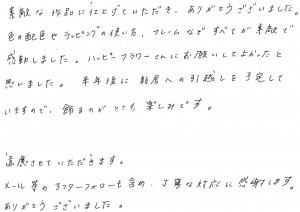 素敵な作品に仕上げていただき、ありがとうございました。
色の配色やラッピングの使い方、フレームなどすべてが素敵で
感動しました。ハッピーフラワーさんにお願いしてよかったと
思いました。半年後に新居への引越しを予定して
いますので、飾るのがとても楽しみです。
遠慮させていただきます。
メール等のアフターフォローも含め、丁寧な対応に感謝します。
ありがとうございました。